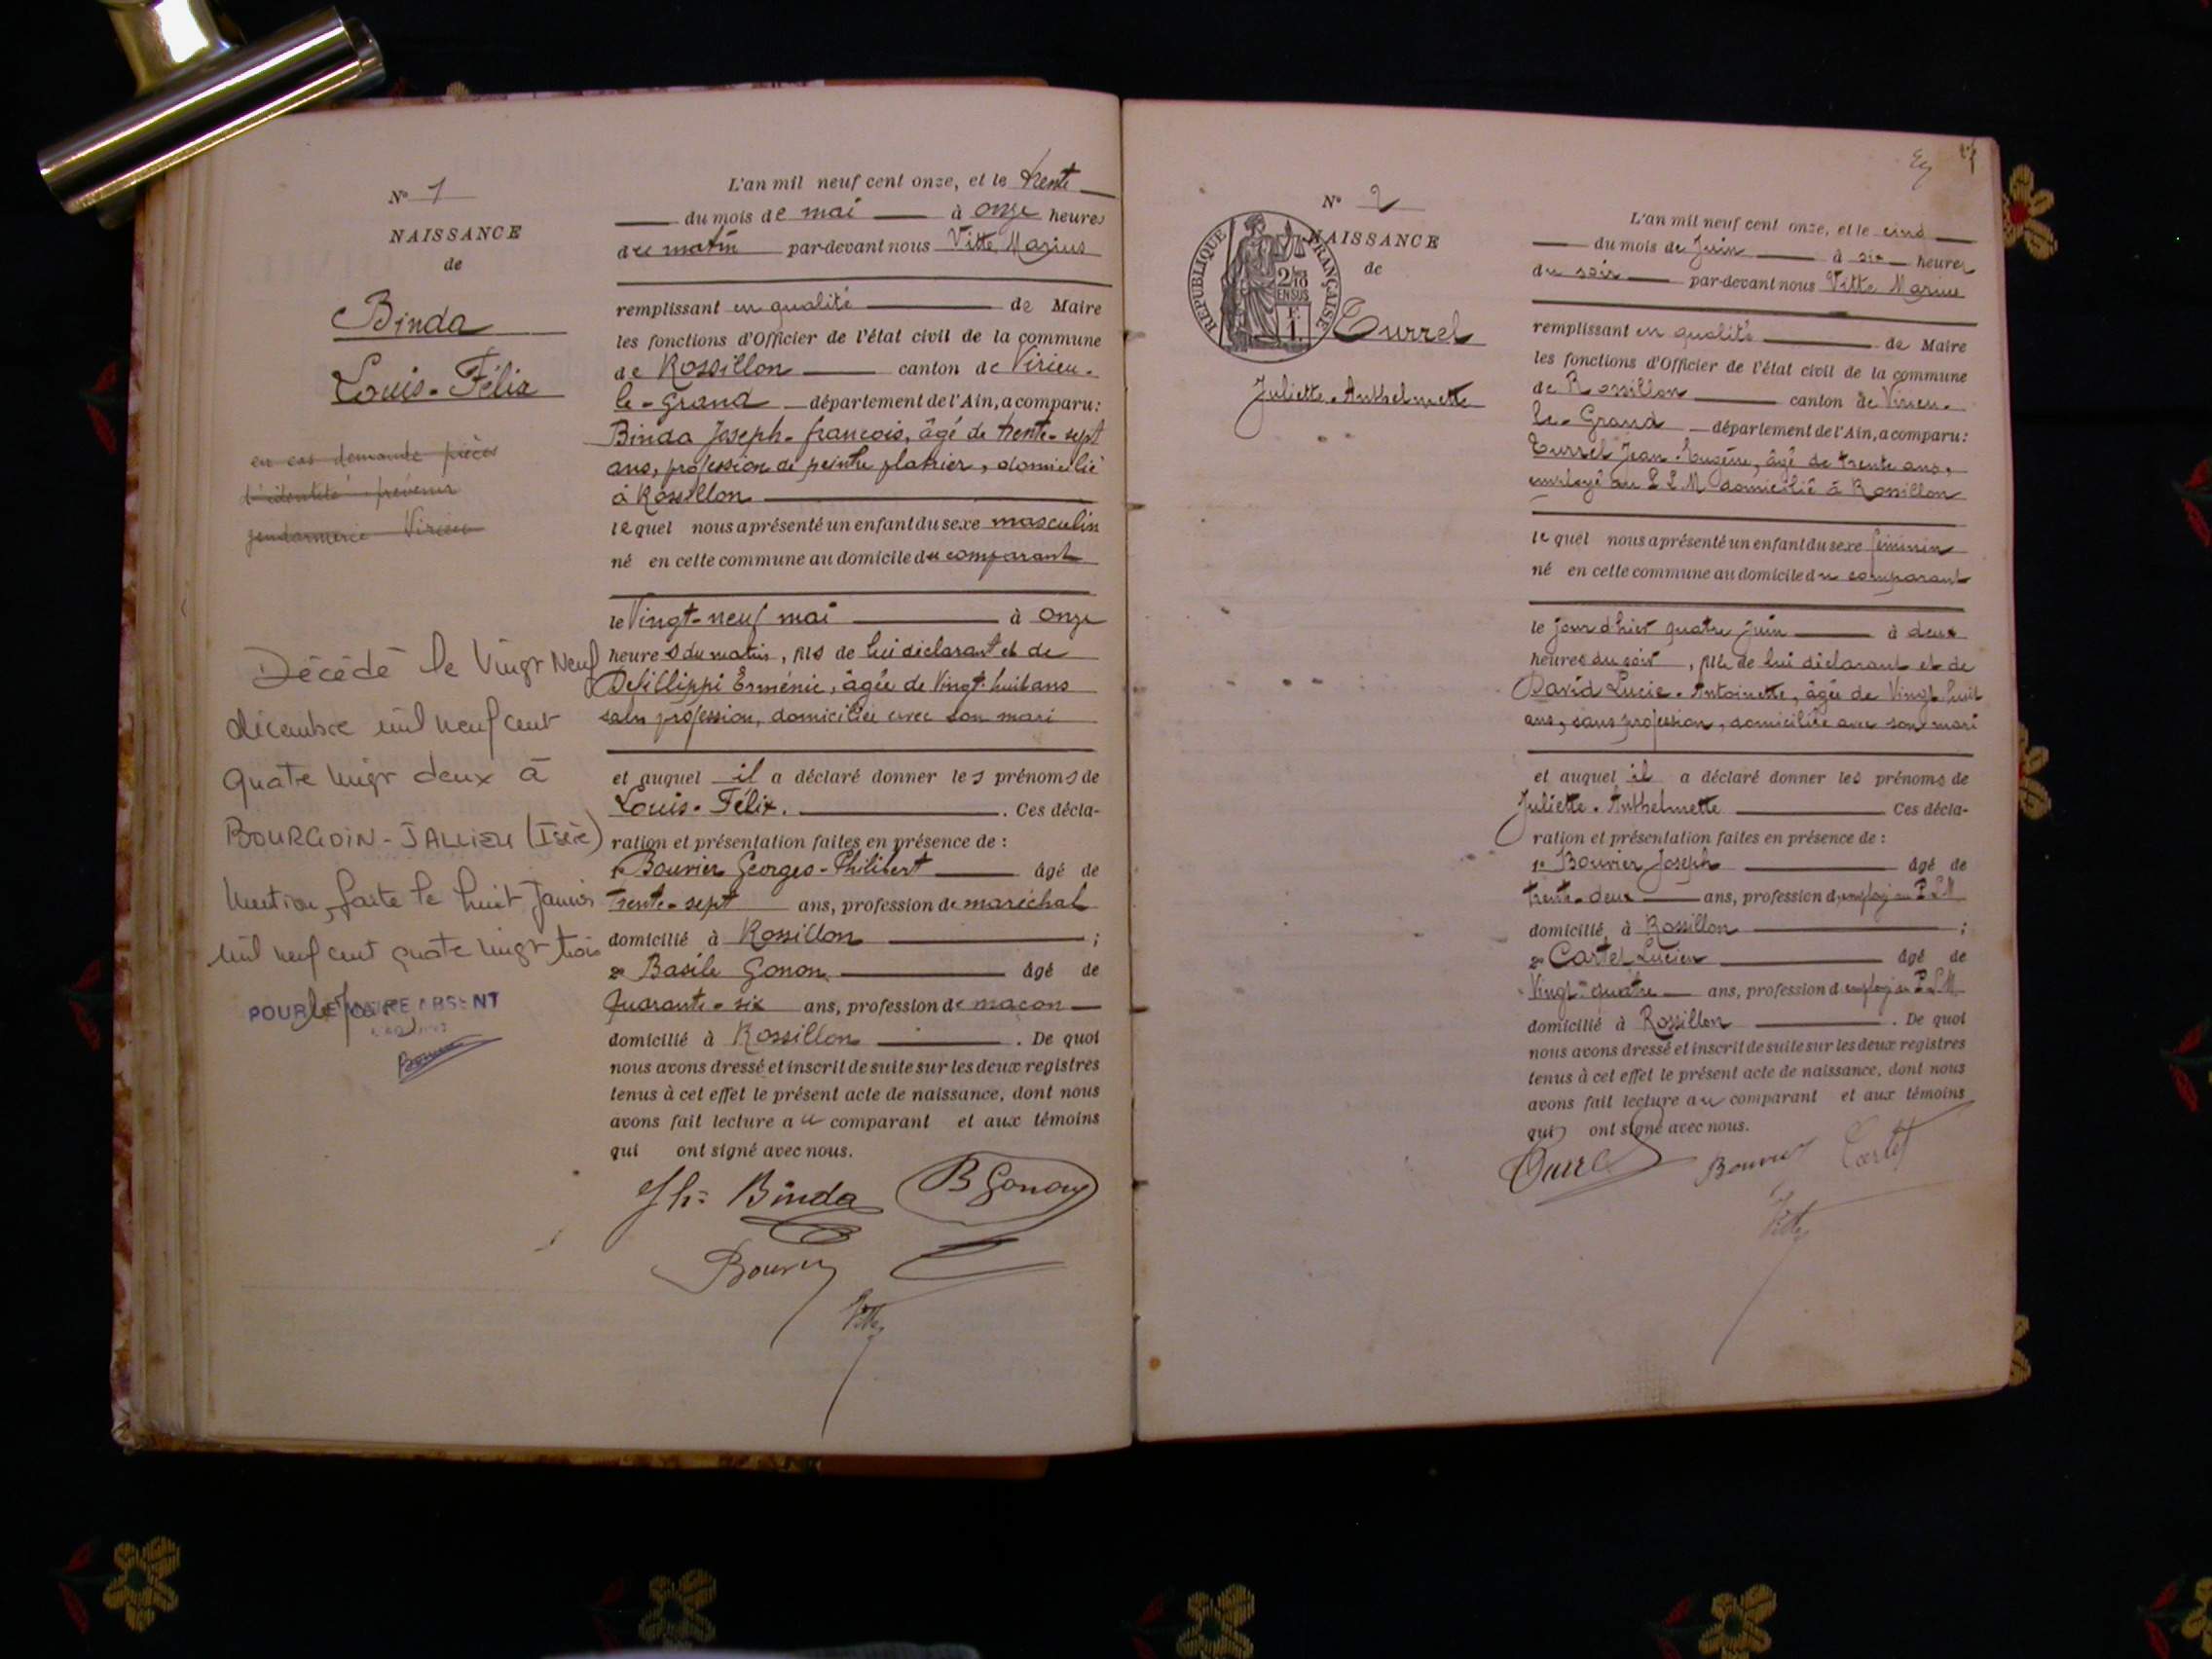 N° 1
NAISSANCE
de
Binda
Louis-Félix
en cas demande pièces
d'identité prévenir
gendarmerie Virieu
Décédé le Vingt Neuf
décembre mil neuf cent
quatre vingt deux à
BOURGOIN-JALLIEU (Isère)
Mention faite le huit Janvier
mil neuf cent quatre vingt trois
POUR LE MAIRE ABSENT
L'an mil neuf cent onze, et le trente
du mois de mai à onze heures
du matin par-devant nous Vitte Marius
remplissant en qualité de Maire
les fonctions d'Officier de l'état civil de la commune
de Rossillon canton de Virieu-
le-Grand département de l'Ain, a comparu:
Binda Joseph-françois, âgé de trente-sept
ans, profession de peintre plâtrier, domicilié
à Rossillon
lequel nous a présenté un enfant du sexe masculin
né en cette commune au domicile du comparant
le Vingt-neuf mai à onze
heures du matin, fils de lui déclarant et de
Defillippi Erménie, âgée de Vingt-huit ans
sans profession, domiciliée avec son mari
et auquel il a déclaré donner les prénoms de
Louis-Félix. . Ces décla-
ration et présentation faites en présence de :
1° Bouvier Georges-Philibert âgé de
trente-sept ans, profession de maréchal
domicilié à Rossillon ;
2° Basile Gonon âgé de
Quarante-six ans, profession de maçon
domicilié à Rossillon . De quoi
nous avons dressé et inscrit de suite sur les deux registres
tenus à cet effet le présent acte de naissance, dont nous
avons fait lecture au comparant et aux témoins
qui ont signé avec nous.
Jh= Binda B Gonon
Bouvier
Vitte
N° 2
NAISSANCE
de
RÉPUBLIQUE FRANÇAISE
2/10
EN SUS
F.
1.
Turrel
Juliette-Anthelmette
L'an mil neuf cent onze, et le cinq
du mois de Juin à six heures
du soir par-devant nous Vitte Marius
remplissant en qualité de Maire
les fonctions d'Officier de l'état civil de la commune
de Rossillon canton de Virieu-
le-Grand département de l'Ain, a comparu:
Turrel Jean-Eugène, âgé de trente ans,
employé au P L M domicilié à Rossillon
lequel nous a présenté un enfant du sexe féminin
né en cette commune au domicile du comparant
le jour d'hier quatre juin à deux
heures du soir, fille de lui déclarant et de
David Lucie-Antoinette, âgée de Vingt-huit
ans, sans profession, domiciliée avec son mari
et auquel il a déclaré donner les prénoms de
Juliette-Anthelmette Ces décla-
ration et présentation faites en présence de :
1° Bouvier Joseph âgé de
trente-deux ans, profession d'employé au P.L.M
domicilié à Rossillon ;
2° Cartet Lucien âgé de
Vingt-quatre ans, profession d'employé au P.L.M
domicilié à Rossillon . De quoi
nous avons dressé et inscrit de suite sur les deux registres
tenus à cet effet le présent acte de naissance, dont nous
avons fait lecture au comparant et aux témoins
qui ont signé avec nous.
Turrel Bouvier Cartet
Vitte